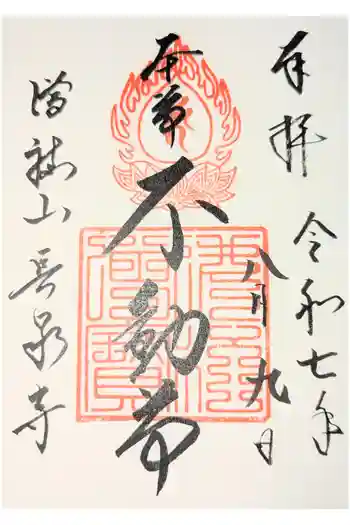 奉拝
令和七年
八月九日
本尊
不動尊
山長泉寺